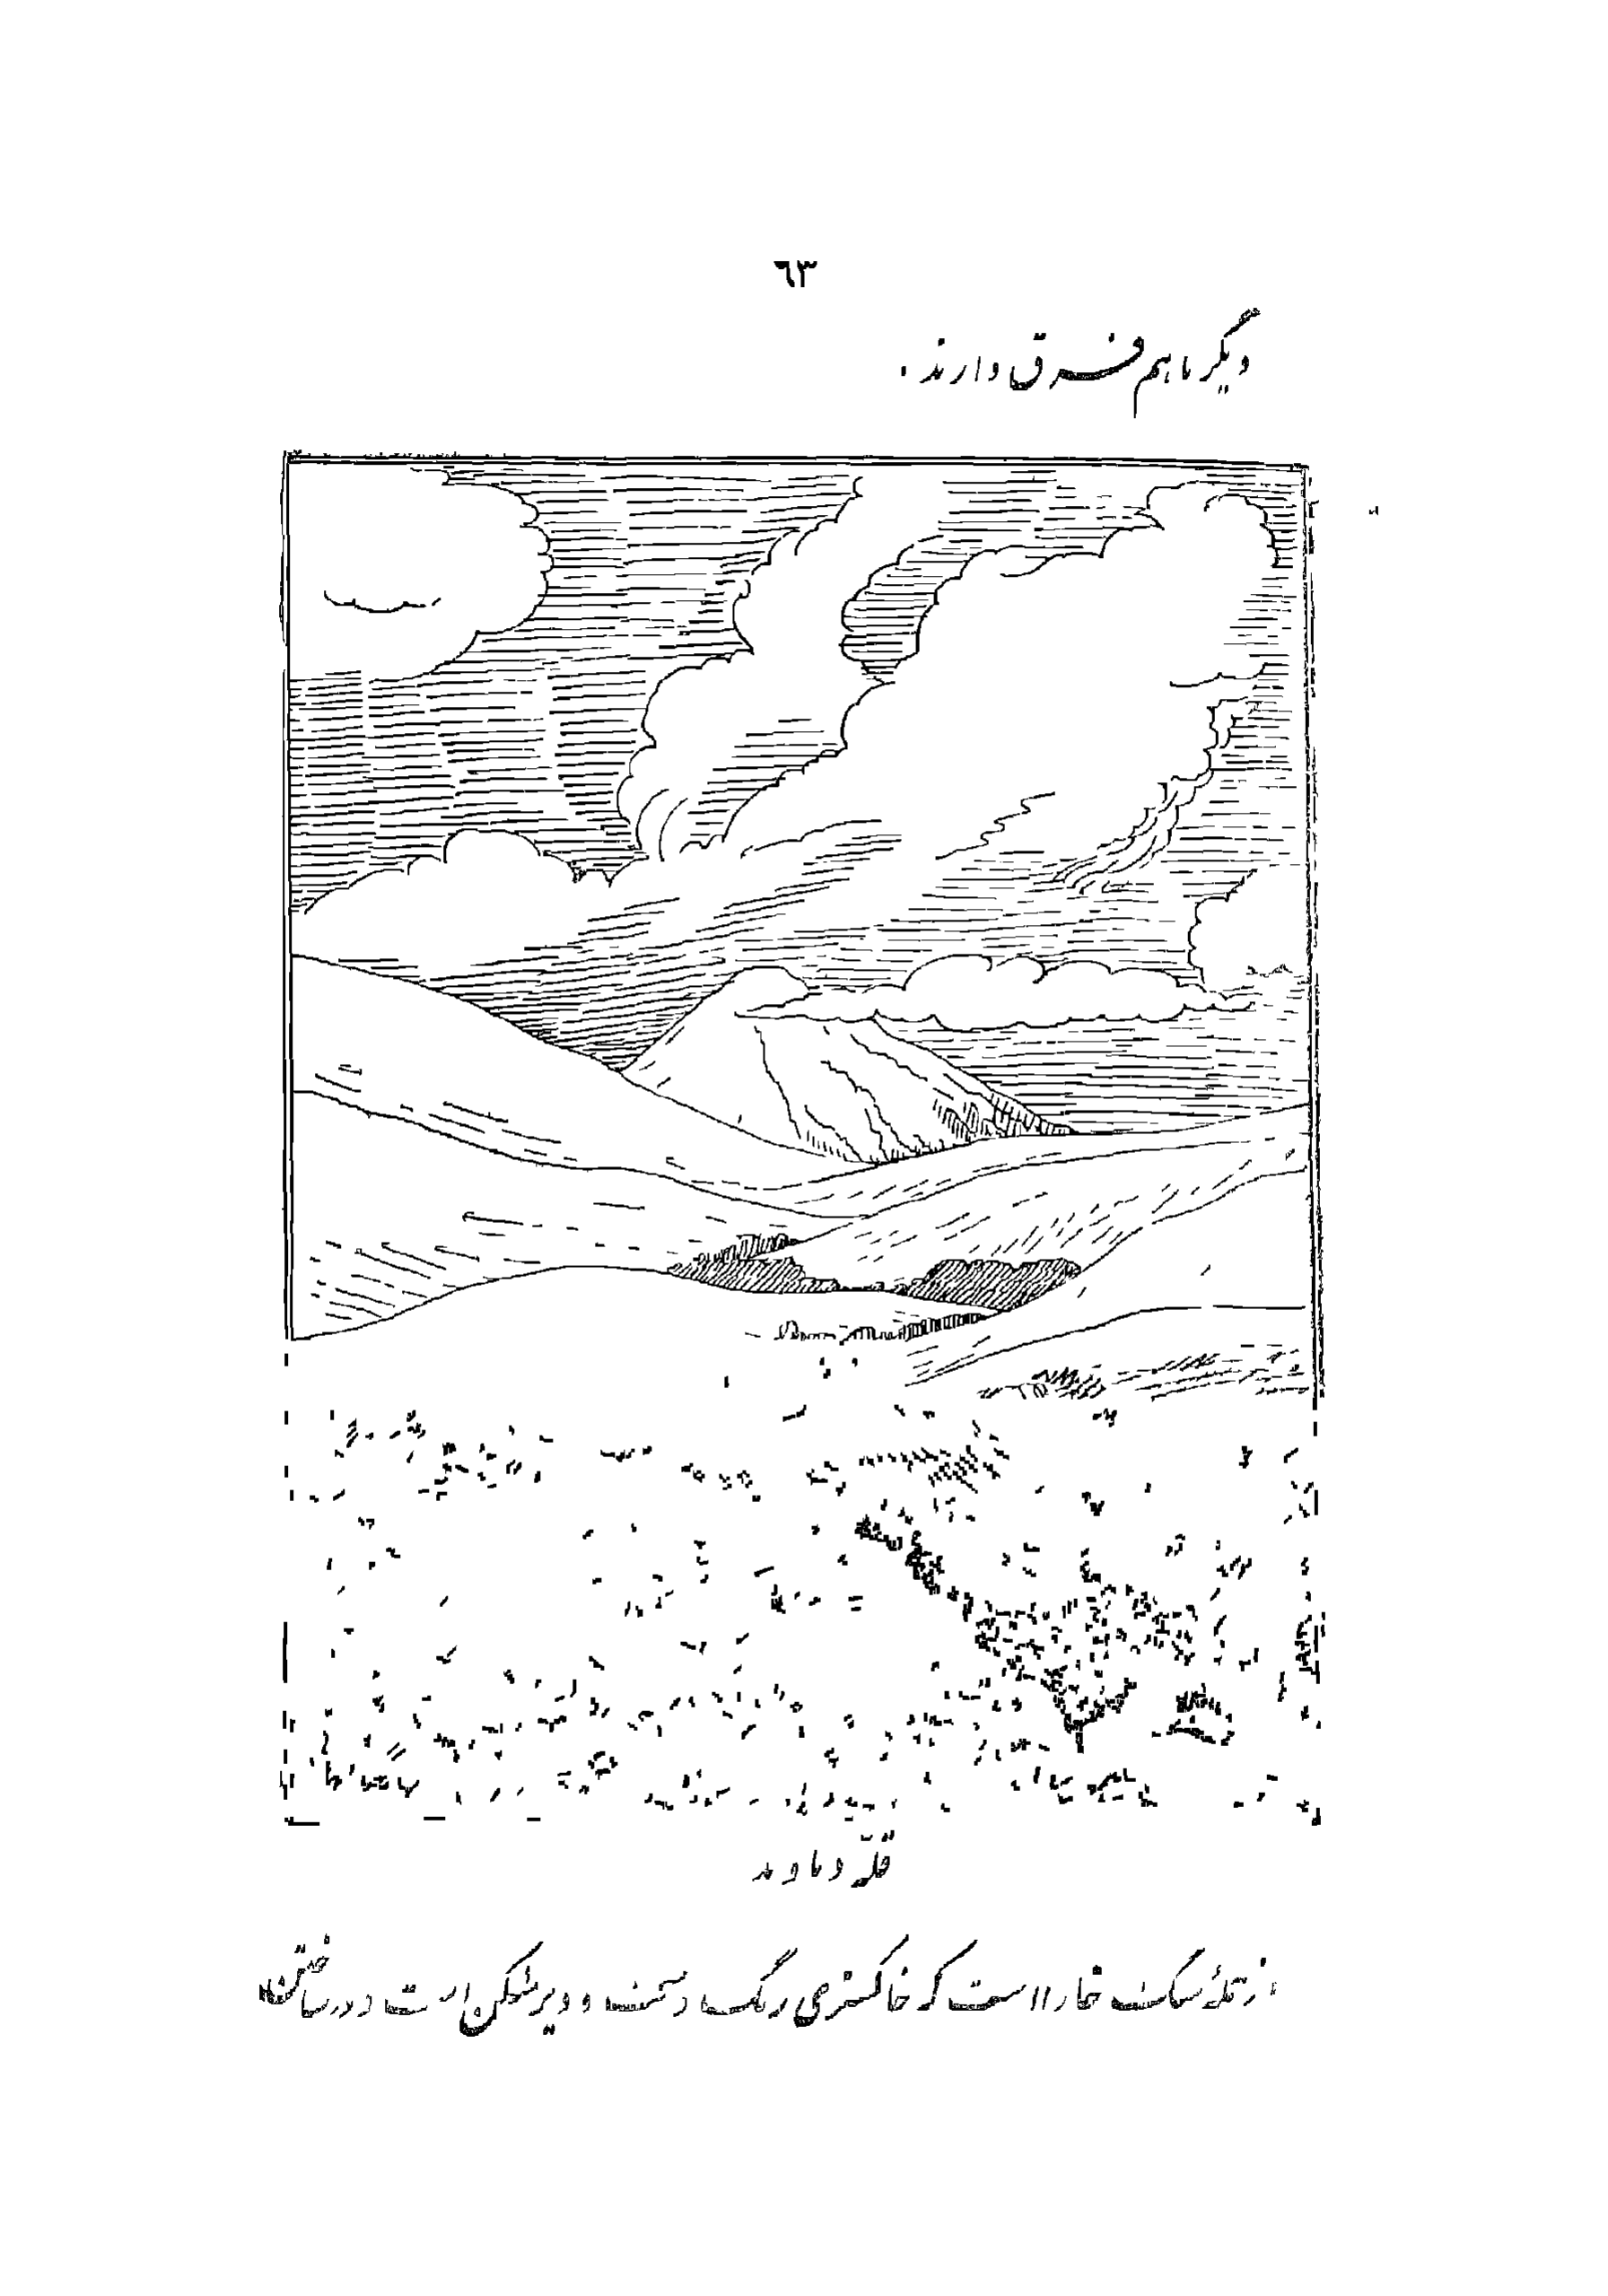 ٦٣
دیگر باهم فرق دارند.
قلّهٔ دماوند
سنگ خارا است که خاکستری رنگ و سخت و دیرشکن است و در ساختن